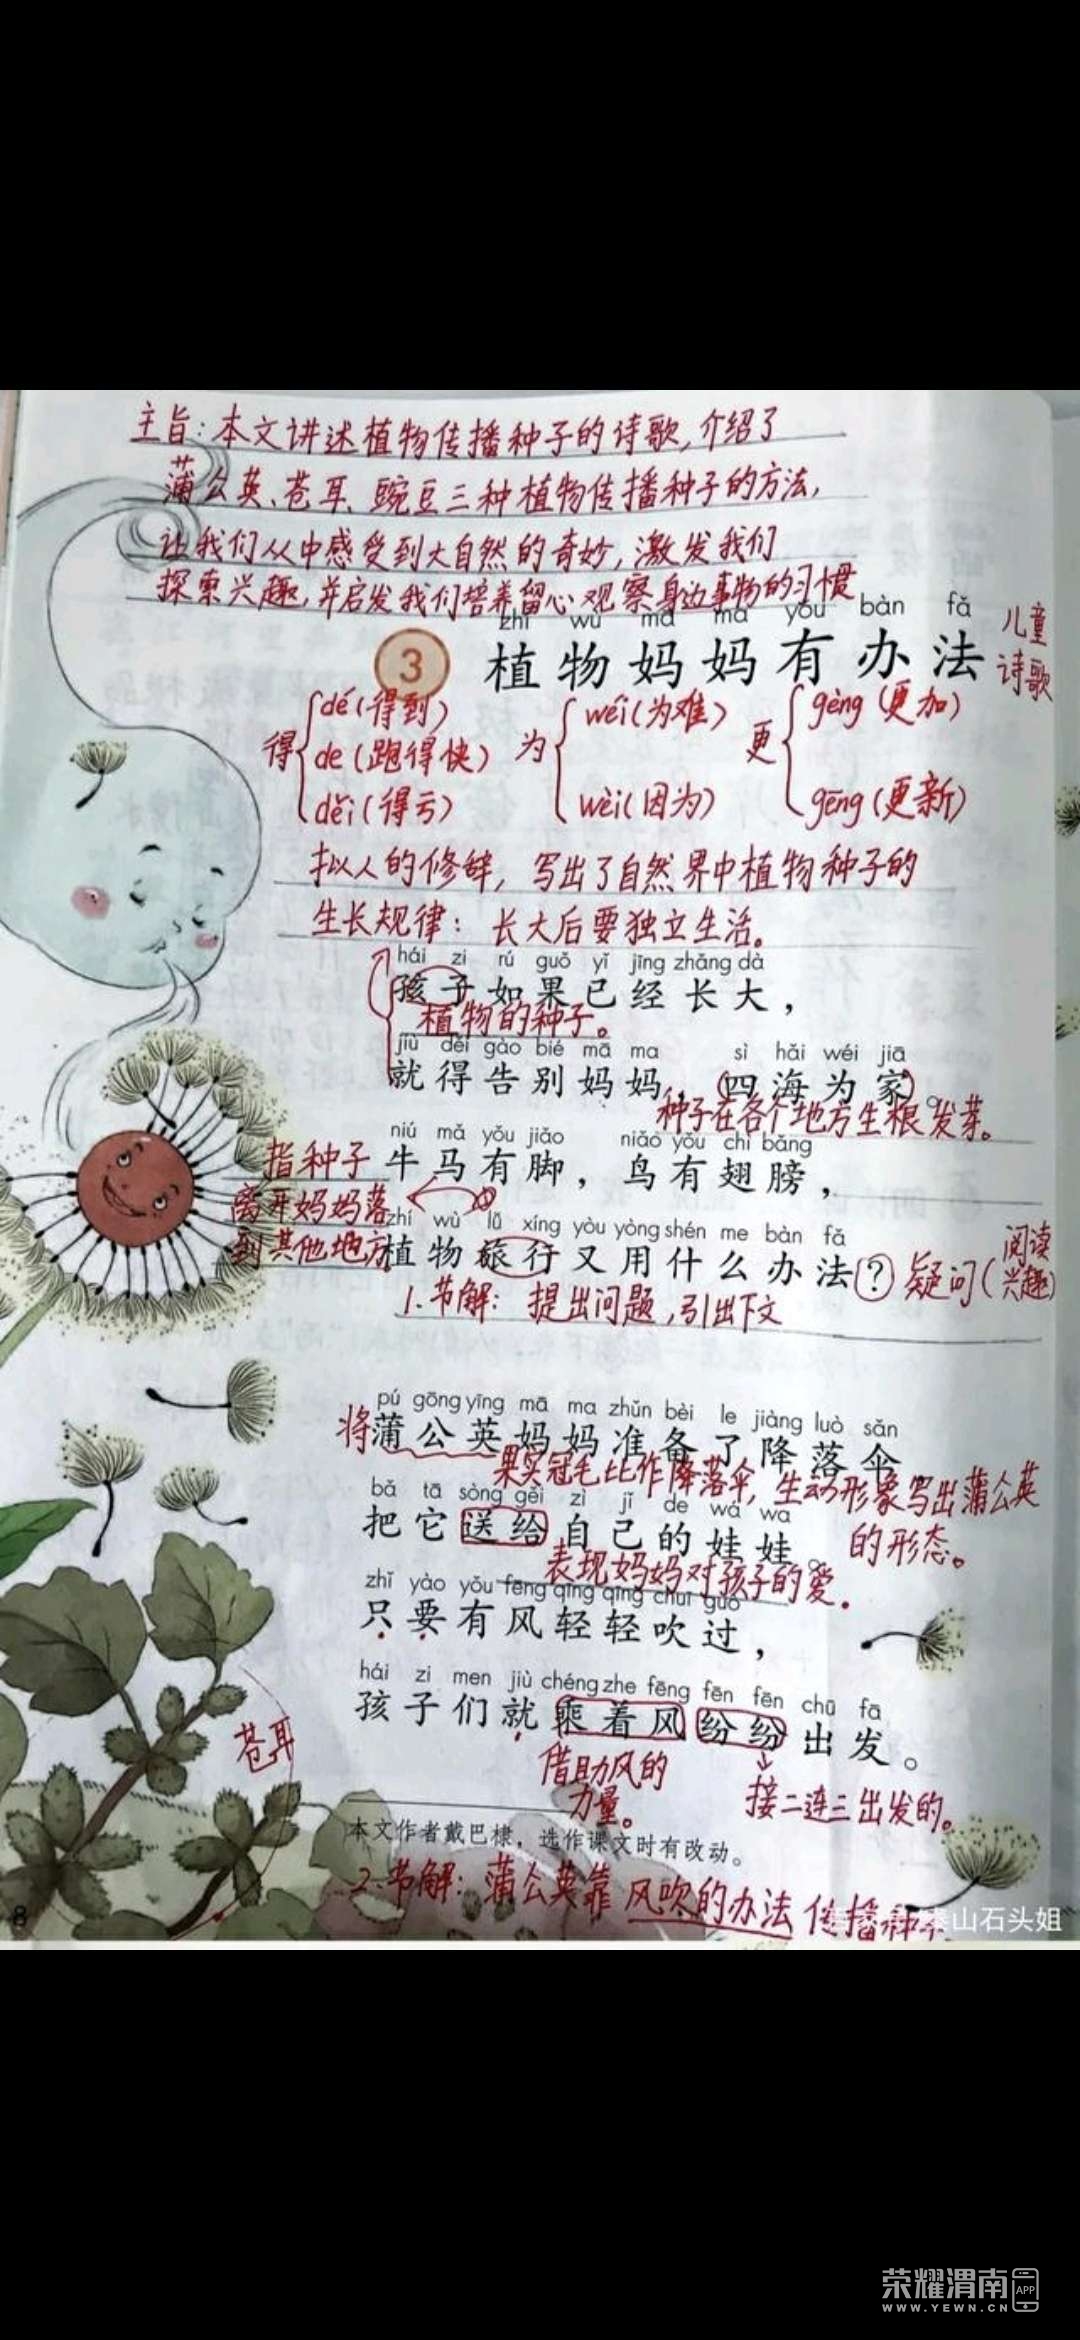 主旨:本文讲述植物传播种子的诗歌,介绍了
蒲公英、苍耳、豌豆三种植物传播种子的方法,
让我们从中感受到大自然的奇妙,激发我们
探索兴趣,并启发我们培养留心观察身边事物的习惯
zhí wù mā ma yǒu bàn fǎ
3 植物妈妈有办法
儿童
诗歌
得 dé(得到) de(跑得快) děi(得亏)
为 wéi(为难) wèi(因为)
更 gèng(更加) gēng(更新)
拟人的修辞,写出了自然界中植物种子的
生长规律:长大后要独立生活。
hái zi rú guǒ yǐ jīng zhǎng dà
孩子如果已经长大,
植物的种子。
jiù děi gào bié mā ma sì hǎi wéi jiā
就得告别妈妈,四海为家。
种子在各个地方生根发芽。
niú mǎ yǒu jiǎo niǎo yǒu chì bǎng
牛马有脚,鸟有翅膀,
指种子
离开妈妈落
到其他地方
zhí wù lǚ xíng yòu yòng shén me bàn fǎ
植物旅行又用什么办法?
疑问(阅读兴趣)
1.节解:提出问题,引出下文
pú gōng yīng mā ma zhǔn bèi le jiàng luò sǎn
将蒲公英妈妈准备了降落伞,
果实冠毛比作降落伞,生动形象写出蒲公英
的形态。
bǎ tā sòng gěi zì jǐ de wá wa
把它送给自己的娃娃。
表现妈妈对孩子的爱.
zhǐ yào yǒu fēng qīng qīng chuī guò
只要有风轻轻吹过,
hái zi men jiù chéng zhe fēng fēn fēn chū fā
孩子们就乘着风纷纷出发。
苍耳
借助风的
力量。
接二连三出发的。
本文作者戴巴棣,选作课文时有改动。
2.节解:蒲公英靠风吹的办法传播种子
8
泰山石头姐
荣耀渭南 APP
WWW.YEWN.CN